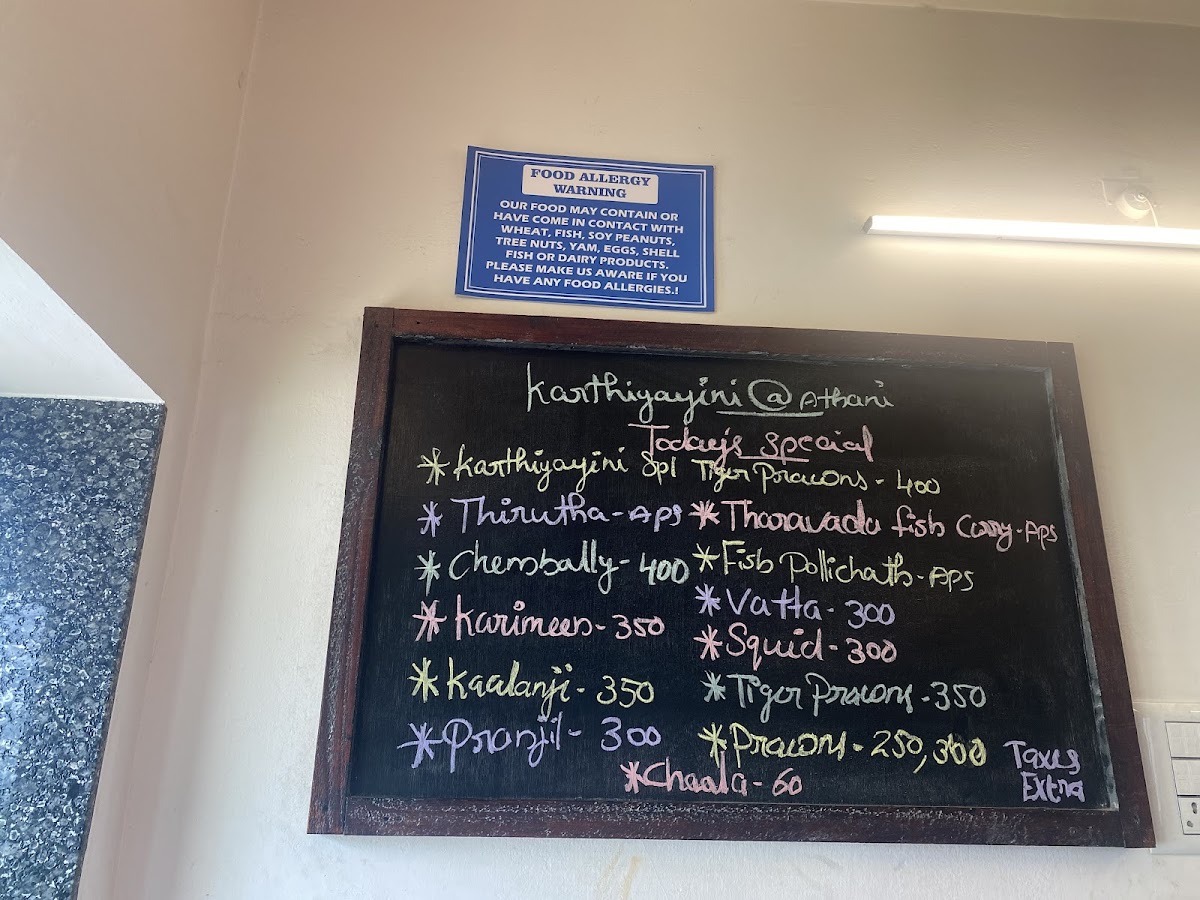 FOOD ALLERGY
WARNING
OUR FOOD MAY CONTAIN OR
HAVE COME IN CONTACT WITH
WHEAT, FISH, SOY PEANUTS,
TREE NUTS, YAM, EGGS, SHELL
FISH OR DAIRY PRODUCTS.
PLEASE MAKE US AWARE IF YOU
HAVE ANY FOOD ALLERGIES.!
Karthiyayini @ Athani
Today's special
* Karthiyayini Spl Tiger Prawns - 400
* Thirutha - APS
* Tharavadu fish Curry - APS
* Chembally - 400
* Fish Pollichath - APS
* Karimeen - 350
* Vatta - 300
* Squid - 300
* Kaalanji - 350
* Tiger Prawns - 350
* Pranjil - 300
* Prawns - 250, 300
* Chaala - 60
Taxes
Extra